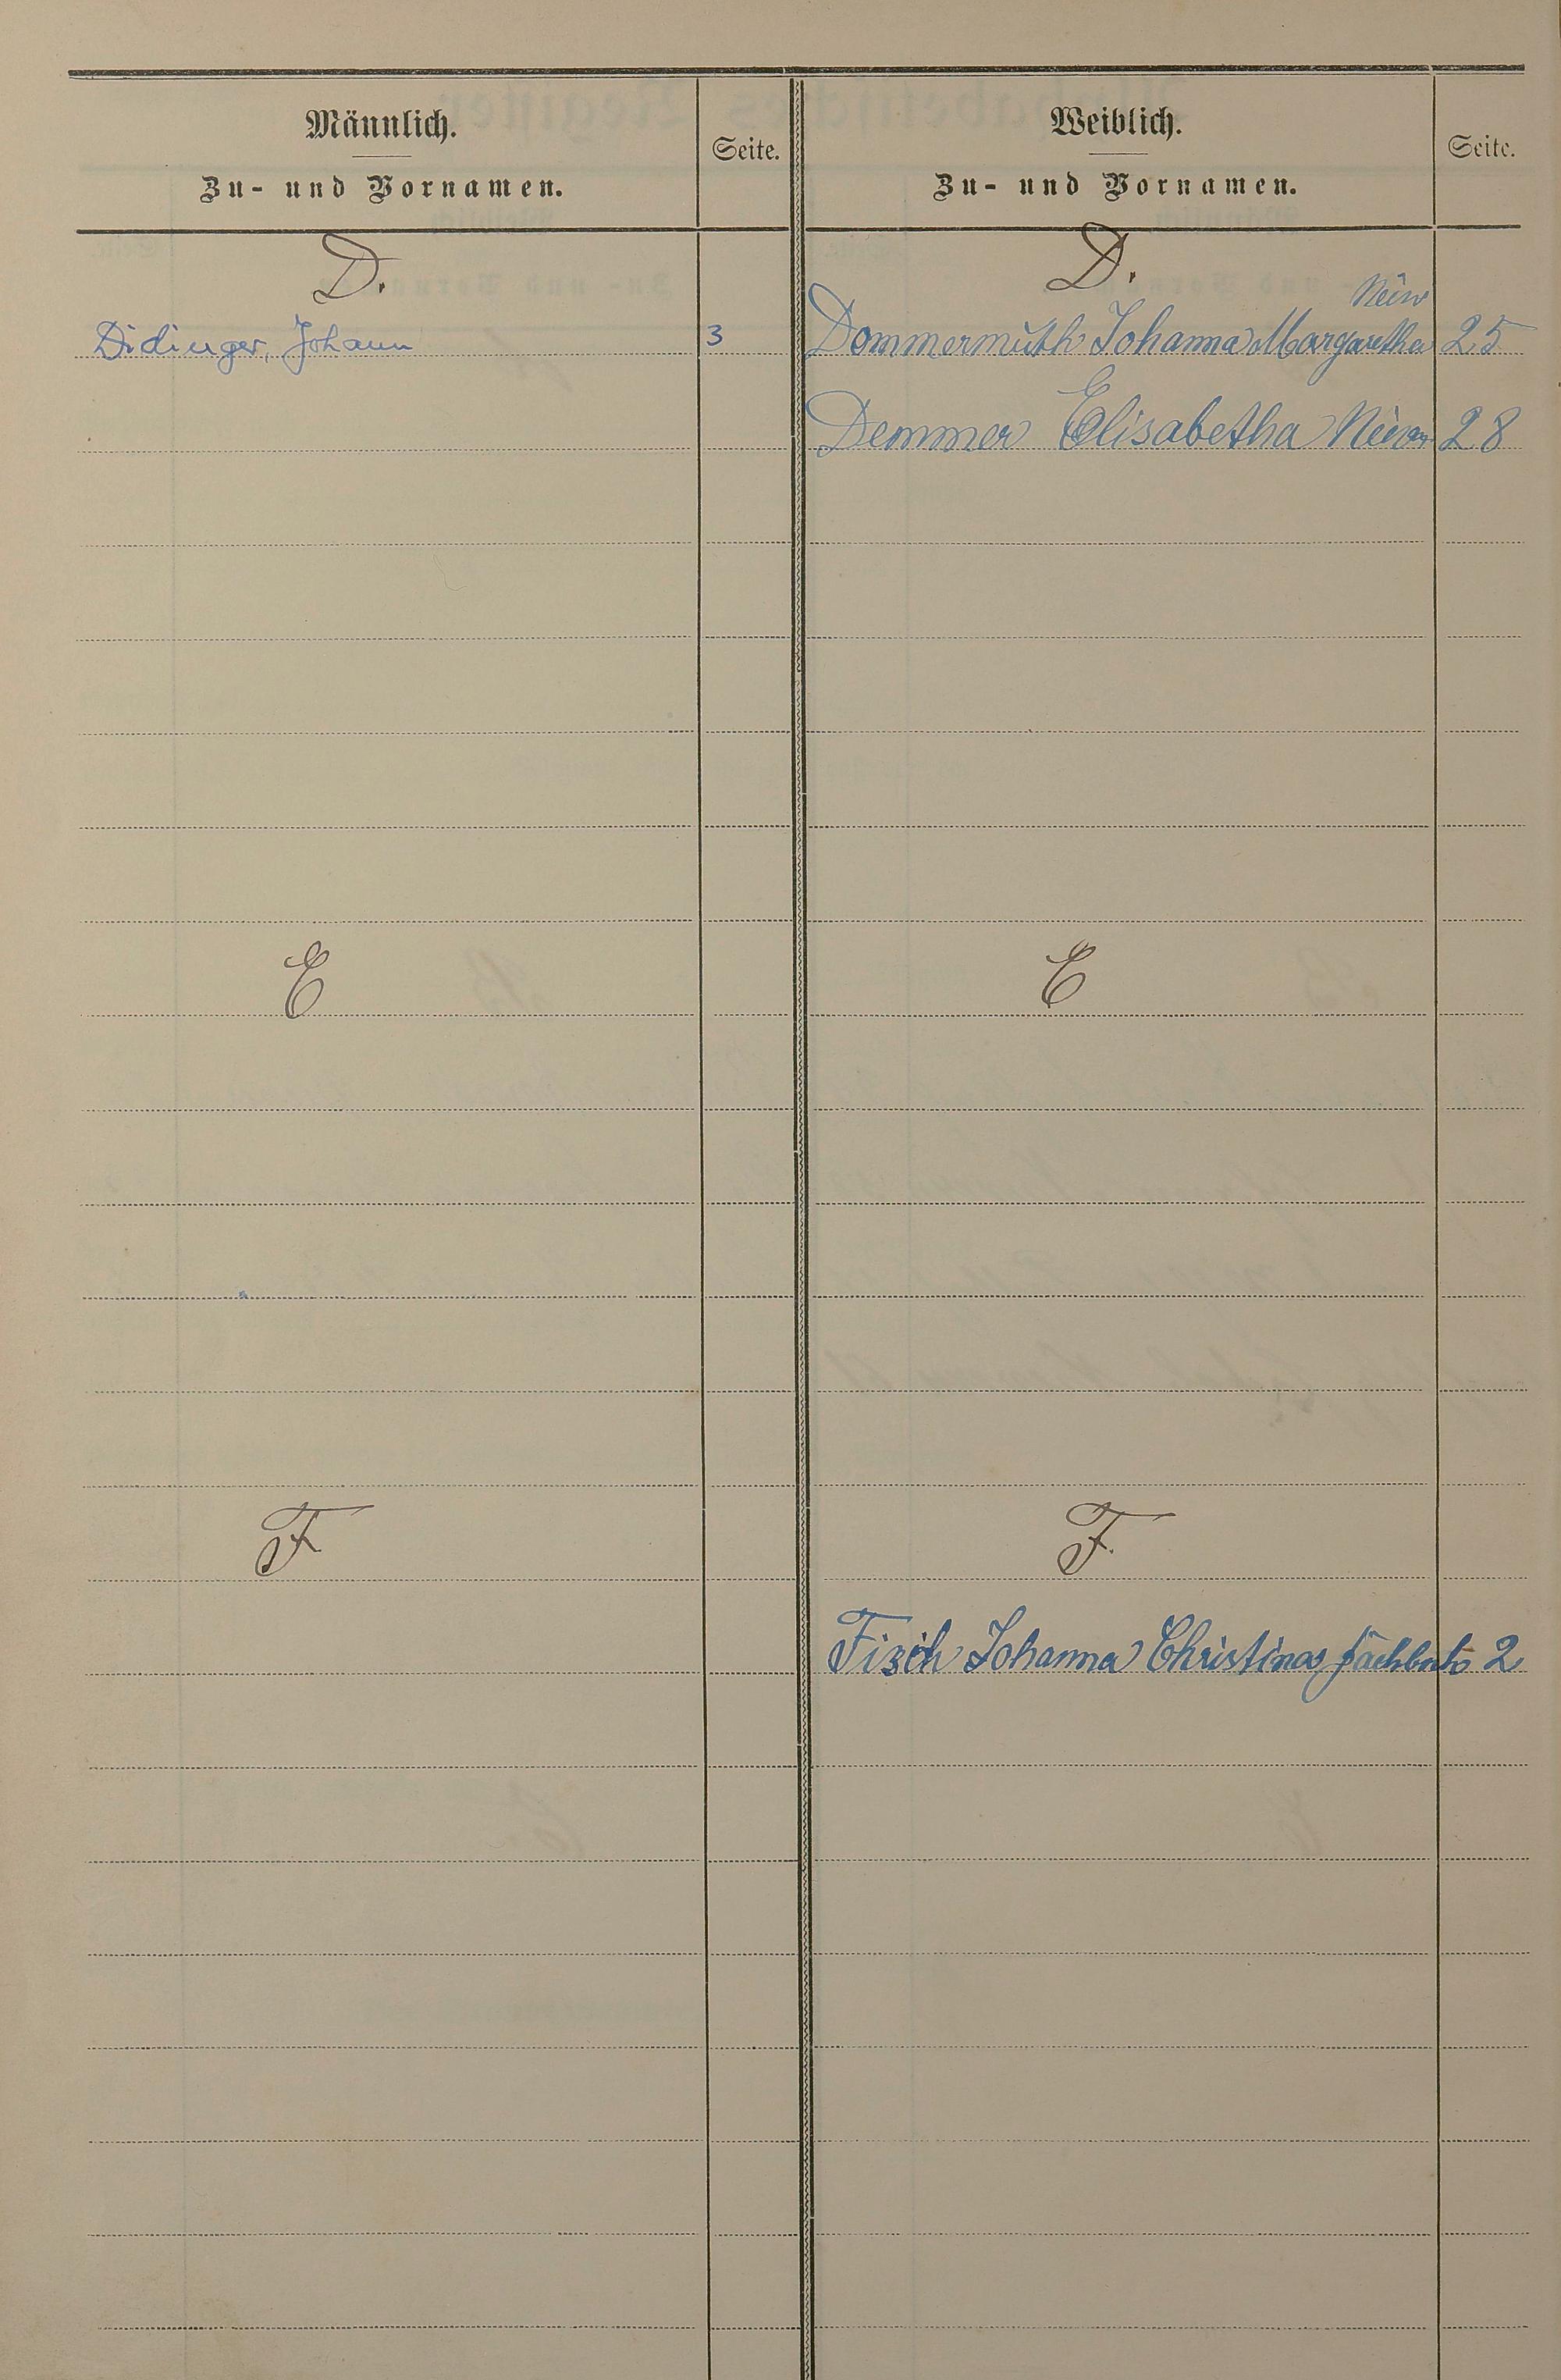 Männlich.
Zu- und Vornamen.
Seite.
Weiblich.
Zu- und Vornamen.
Seite.
D.
D.
Didinger, Johann 3
Dommermuth Johanna Margaretha 25
Demmer Elisabetha 28
E
E
F
F.
Fisch Johanna Christina 2